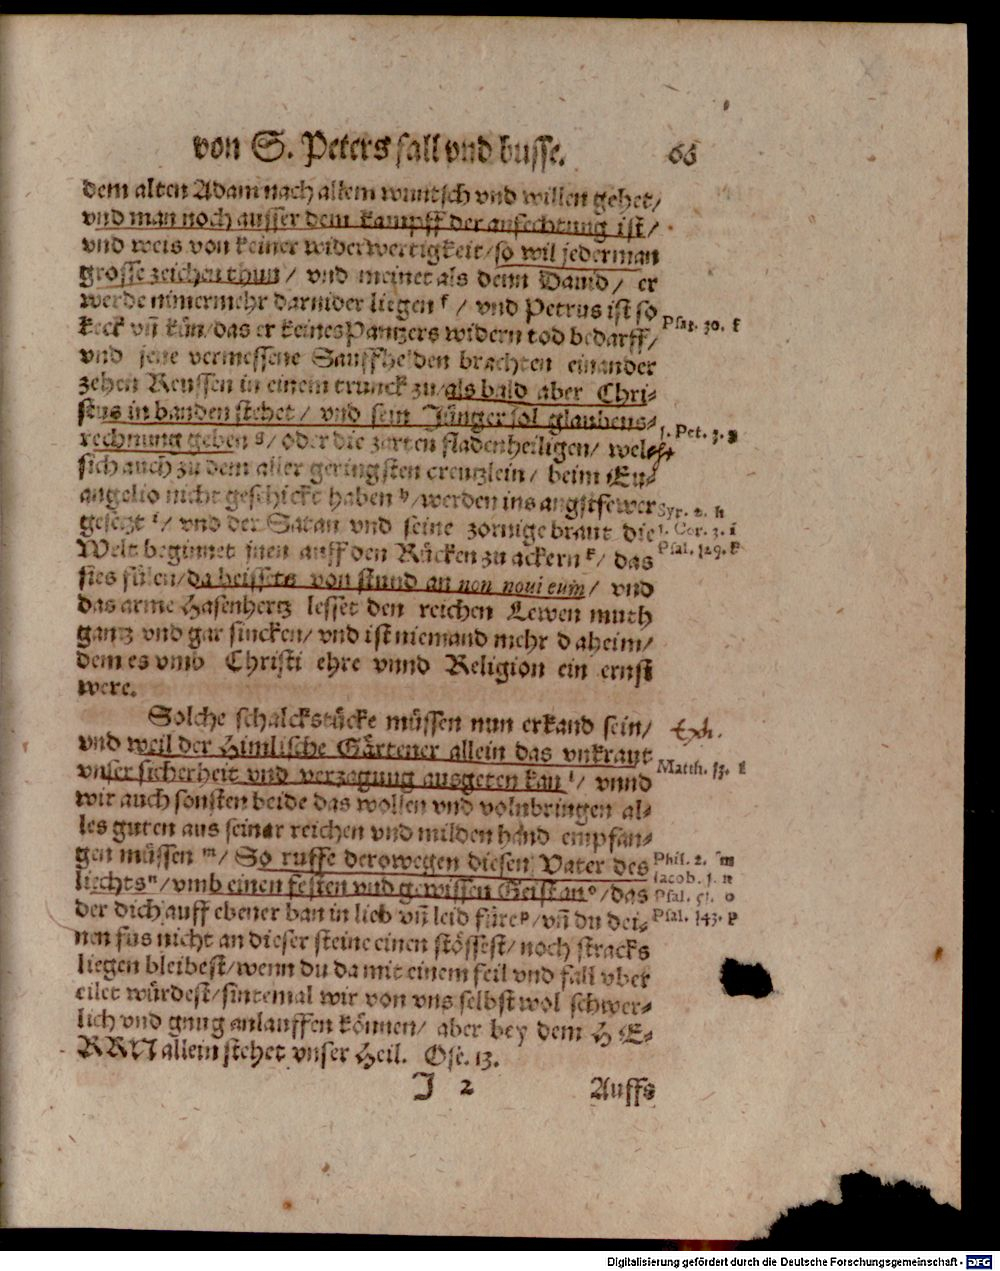 von S. Peters fall vnd busse. 66
dem alten Adam nach allem wuntsch vnd willen gehet/
vnd man noch ausser dem kampff der anfechtung ist/
vnd weis von keiner widerwertigkeit/so wil jederman
grosse zeichen thun/ vnd meinet als denn Dauid/ er
werde nimermehr darnider liegen f/ vnd Petrus ist so
keck vñ kün/das er keines Pantzers widern tod bedarff/
Psal. 30. f
vnd jene vermessene Sauffhelden brachten einander
zehen Reussen in einem trunck zu/als bald aber Chri-
stus in banden stehet/ vnd sein Jünger sol glaubens-
1. Pet. 3. g
rechnung geben g/ oder die zarten fladenheiligen/ wel-
sich auch zu dem aller geringsten creutzlein/ beim Eu-
angelio nicht geschickt haben h/werden ins angstfewer
Syr. 2. h
gesetzt i/ vnd der Satan vnd seine zornige braut die
1. Cor. 3. i
Welt beginnet jnen auff den Rücken zu ackern k/ das
Psal. 129. k
sies fülen/da heissets von stund an non noui eum/ vnd
das arme Hasenhertz lesset den reichen Lewen muth
gantz vnd gar sincken/ vnd ist niemand mehr daheim/
dem es vmb Christi ehre vnnd Religion ein ernst
were.
Solche schalckstücke müssen nun erkand sein/
vnd weil der Himlische Gärtener allein das vnkraut
vnser sicherheit vnd verzagung ausgeten kan l/ vnnd
Matth. 13. l
wir auch sonsten beide das wollen vnd volnbringen al-
les guten aus seiner reichen vnd milden hand empfan-
gen müssen m/ So ruffe derowegen diesen Vater des
Phil. 2. m
liechts n/vmb einen festen vnd gewissen Geist an o/das
Iacob. 1. n
Psal. 51. o
der dich auff ebener ban in lieb vñ leid füre p/vñ du dei-
Psal. 143. p
nen fus nicht an dieser steine einen stössest/ noch stracks
liegen bleibest/wenn du da mit einem feil vnd fall vber
eilet würdest/sintemal wir von vns selbst wol schwer-
lich vnd gnug anlauffen können/ aber bey dem HE-
RRN allein stehet vnser Heil. Ose. 13.
J 2 Auffs
Digitalisierung gefördert durch die Deutsche Forschungsgemeinschaft - DFG